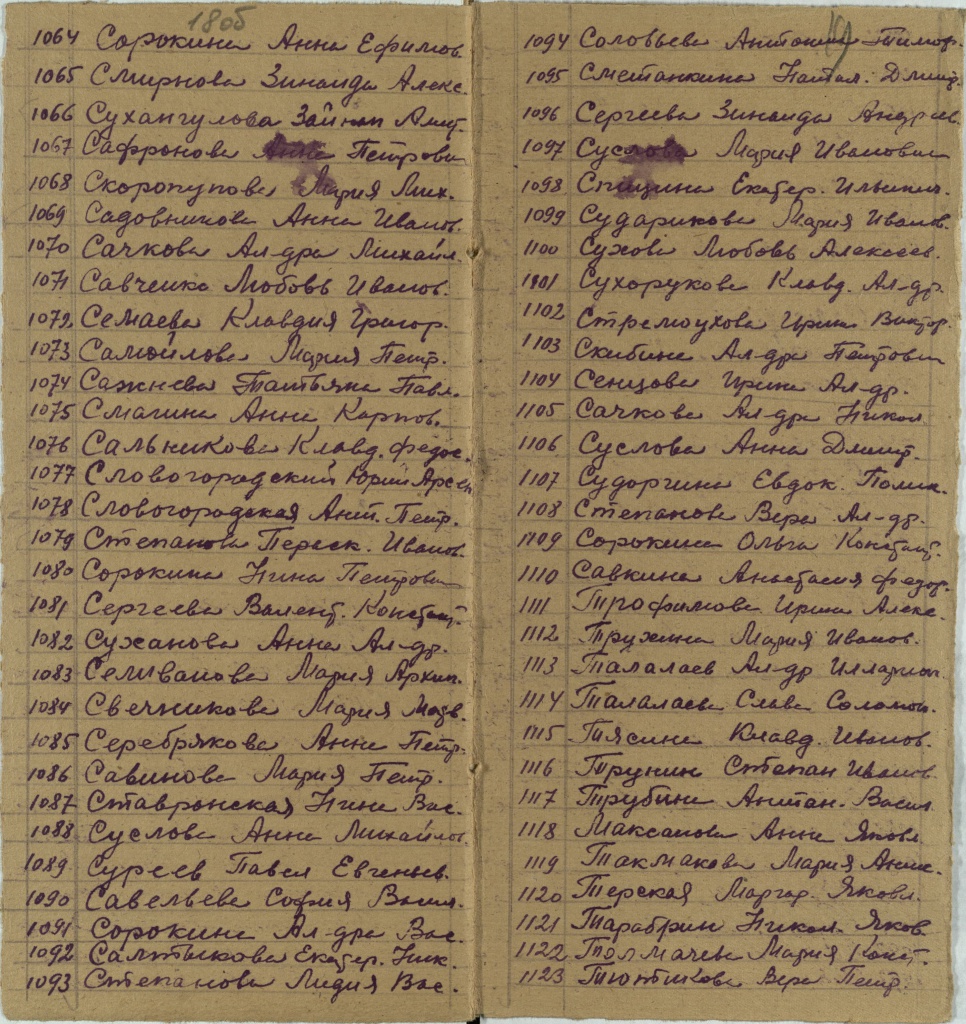 1805
1064 Сорокина Анна Ефимов.
1065 Смирнова Зинаида Алекс.
1066 Сухангулова Зайнап Амит.
1067 Сафронова Анна Петровн
1068 Скоропупова Мария Мих.
1069 Садовникова Анна Иванов.
1070 Сачкова Ал-дра Михайл.
1071 Савченко Любовь Иванов.
1072 Семаева Клавдия Григор.
1073 Самойлова Мария Петр.
1074 Сажнева Татьяна Павл.
1075 Смагина Анна Карпов.
1076 Сальникова Клавд. Федос.
1077 Словогородский Юрий Арсен
1078 Словогородская Ант. Петр.
1079 Степанова Параск. Иванов.
1080 Сорокина Нина Петровн
1081 Сергеева Валент. Констант.
1082 Суханова Анна Ал-др.
1083 Селиванова Мария Архип.
1084 Свечникова Мария Матв.
1085 Серебрякова Анна Петр.
1086 Савинова Мария Петр.
1087 Ставронская Нина Вас.
1088 Суслова Анна Михайлов
1089 Суреев Павел Евгеньев.
1090 Савельева София Васил.
1091 Сорокина Ал-дра Вас.
1092 Салтыкова Екатер. Ник.
1093 Степанова Лидия Вас.
1094 Соловьева Антонина Тимоф.
1095 Сметанкина Натал. Дмит.
1096 Сергеева Зинаида Андреев.
1097 Суслова Мария Ивановн
1098 Спицина Екатер. Ильинич.
1099 Сударикова Мария Иванов.
1100 Сухова Любовь Алексеев.
1101 Сухорукова Клавд. Ал-др.
1102 Стремоухова Ирина Виктор.
1103 Скибина Ал-дра Петровн
1104 Сенцова Ирина Ал-др.
1105 Сачкова Ал-дра Никол
1106 Суслова Анна Дмит.
1107 Судоргина Евдок. Полик.
1108 Степанова Вера Ал-др.
1109 Сорокина Ольга Констант.
1110 Савкина Анастасия Федор.
1111 Трофимова Ирина Алекс.
1112 Тружина Мария Иванов.
1113 Талалаев Ал-др Илларион.
1114 Талалаева Слава Соломон.
1115 Тясина Клавд. Иванов.
1116 Трунин Степан Иванов
1117 Трубина Антан. Васил.
1118 Максакова Анна Яковл
1119 Такмакова Мария Аник.
1120 Терская Маргар. Яковл.
1121 Тарабрин Никол. Яков
1122 Толмачева Мария Конст.
1123 Тютикова Вера Петр.